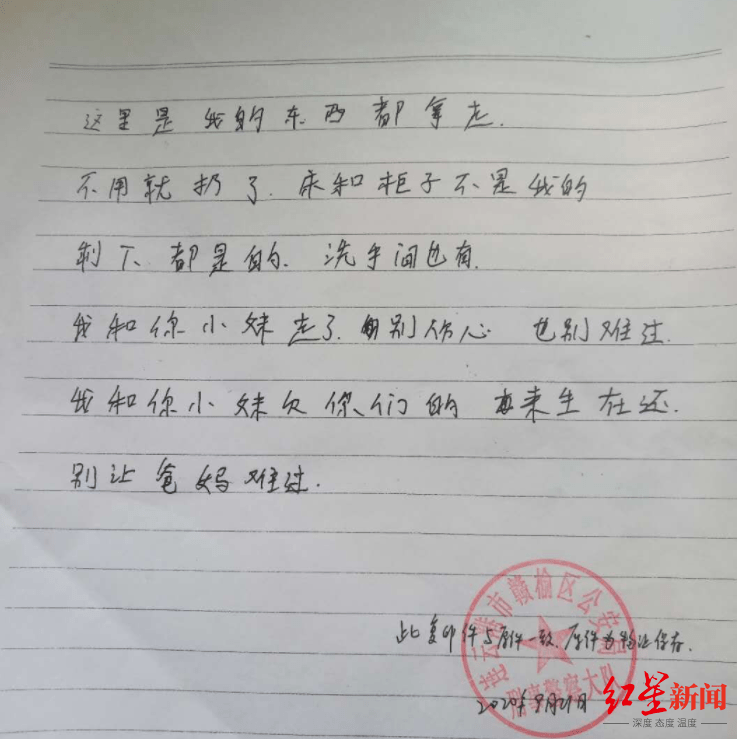 这里是我的东西都拿走.
不用就扔了.床和柜子不是我的
剩下.都是的.洗手间也有.
我和你小妹走了.别伤心 也别难过.
我和你小妹欠你们的 来生在还.
别让爸妈难过.
此复印件与原件一致.原件为物证保存.
2020年9月21日
连云港市赣榆区公安局
刑事警察大队
红星新闻
深度 态度 温度